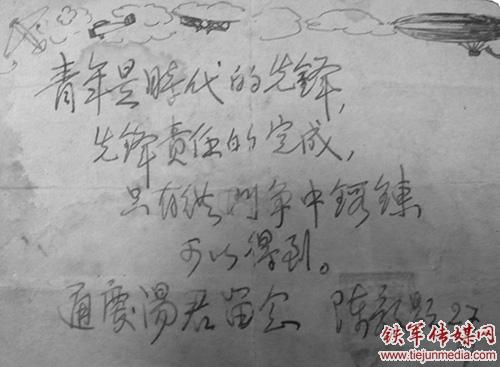 青年是時代的先鋒，
先鋒責任的完成，
只有從鬥争中鍛鍊
可以得到。
通慶湯君留念 陳毅題
铁军传媒网
www.tiejunmedia.com